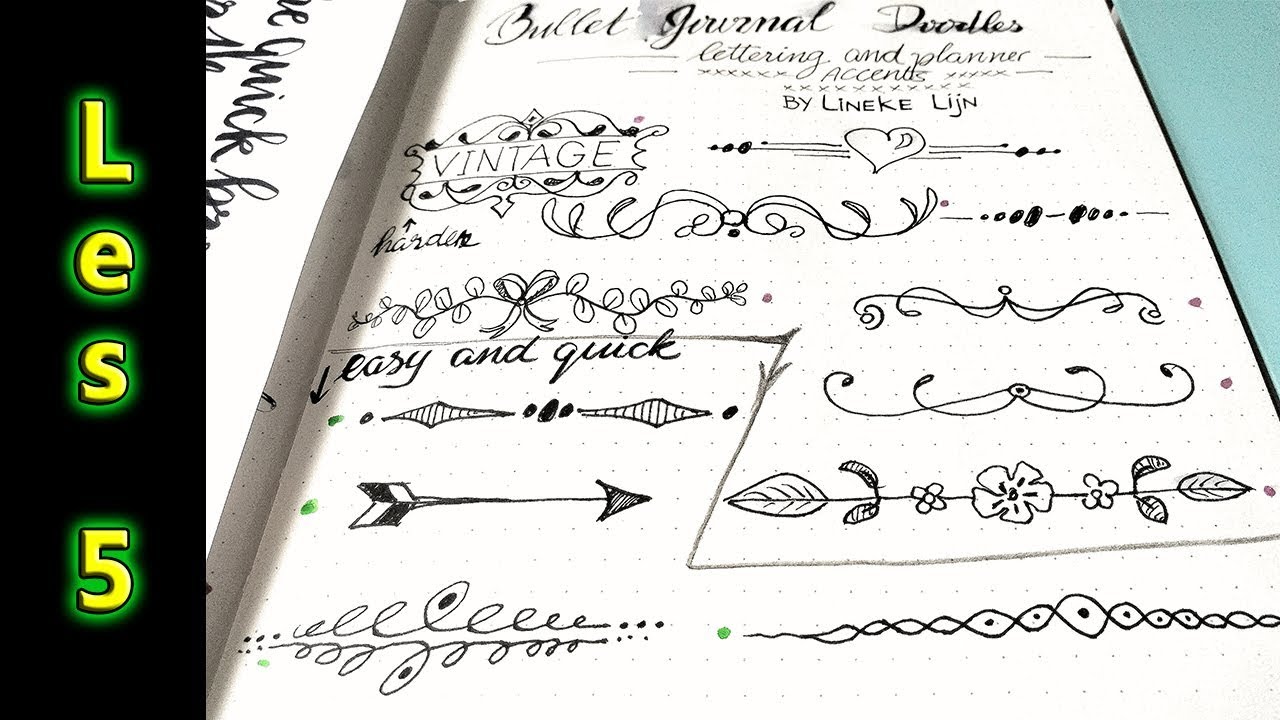 Les 5
he quick
Bullet Journal Doodles
lettering and planner
Accents
BY LINEKE LIJN
VINTAGE
harder
easy and quick